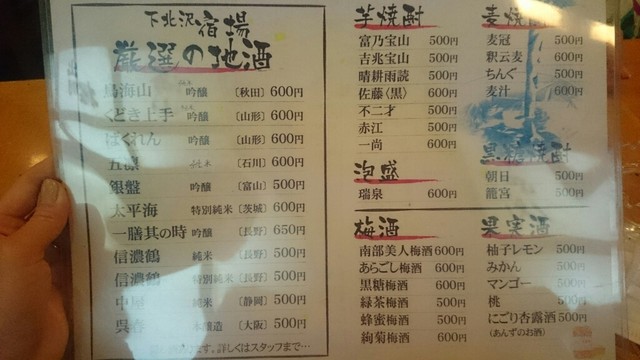 下北沢 宿場
厳選の地酒
鳥海山 純米 吟醸 〔秋田〕 600円
くどき上手 純米 吟醸 〔山形〕 600円
ばくれん 吟醸 〔山形〕 600円
五凛 純米 〔石川〕 600円
銀盤 吟醸 〔富山〕 500円
太平海 特別純米 〔茨城〕 600円
一膳其の時 吟醸 〔長野〕 650円
信濃鶴 純米 〔長野〕 500円
信濃鶴 特別純米 〔長野〕 500円
中屋 純米 〔静岡〕 500円
呉春 本醸造 〔大阪〕 500円
ます。詳しくはスタッフまで…
芋焼酎
富乃宝山 500円
吉兆宝山 500円
晴耕雨読 500円
佐藤〈黒〉 600円
不二才 500円
赤江 500円
一尚 600円
泡盛
瑞泉 600円
梅酒
南部美人梅酒 600円
あらごし梅酒 600円
黒糖梅酒 500円
緑茶梅酒 500円
蜂蜜梅酒 500円
絢菊梅酒 600円
麦焼酎
麦冠 500円
釈云麦 600円
ちんぐ 500円
麦汁 600円
黒糖焼酎
朝日 500円
龍宮 500円
果実酒
柚子レモン 500円
みかん 500円
マンゴー 500円
桃 500円
にごり杏露酒 500円
(あんずのお酒)